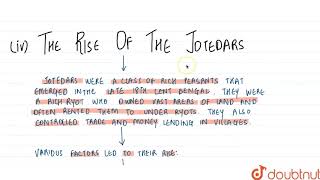 (iv) THE RISE OF THE JOTEDARS
JOTEDARS WERE A CLASS OF RICH PEASANTS THAT
EMERGED IN THE LATE 18TH CENT BENGAL. THEY WERE
A RICH RYOT WHO OWNED VAST AREAS OF LAND AND
OFTEN RENTED THEM TO UNDER RYOTS. THEY ALSO
CONTROLLED TRADE AND MONEY LENDING IN VILLAGES.
VARIOUS FACTORS LED TO THEIR RISE:
doubtnut